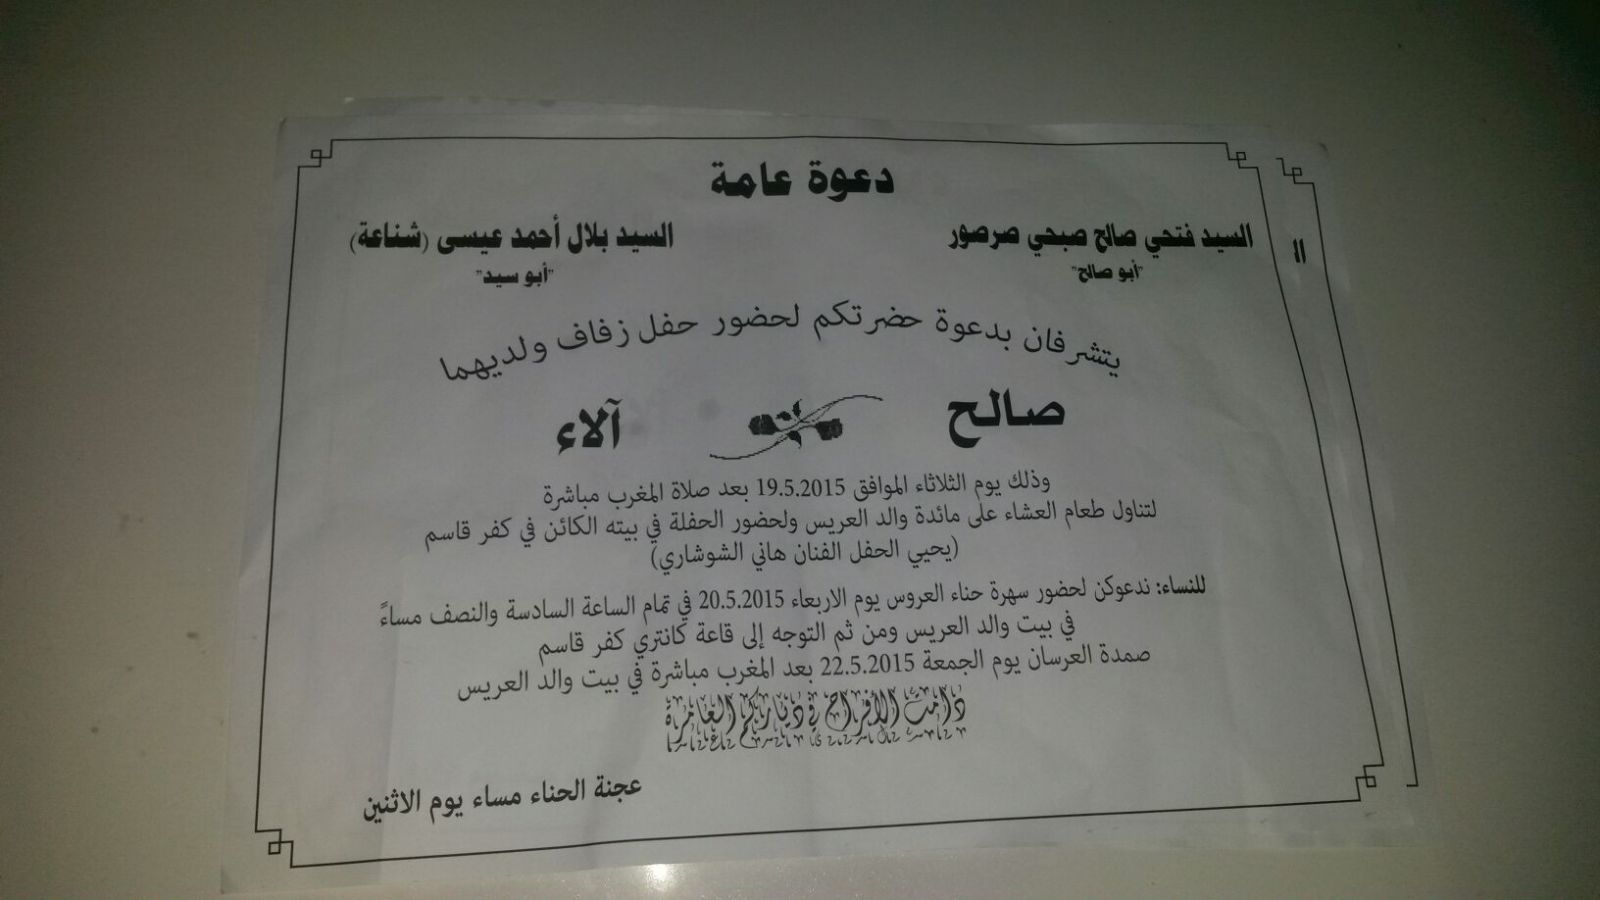 دعوة عامة
السيد فتحي صالح صبحي صرصور
"أبو صالح"
السيد بلال أحمد عيسى (شناعة)
"أبو سيد"
يتشرفان بدعوة حضرتكم لحضور حفل زفاف ولديهما
صالح
آلاء
وذلك يوم الثلاثاء الموافق 19.5.2015 بعد صلاة المغرب مباشرة
لتناول طعام العشاء على مائدة والد العريس ولحضور الحفلة في بيته الكائن في كفر قاسم
(يحيي الحفل الفنان هاني الشوشاري)
للنساء: ندعوكن لحضور سهرة حناء العروس يوم الاربعاء 20.5.2015 في تمام الساعة السادسة والنصف مساءً
في بيت والد العريس ومن ثم التوجه إلى قاعة كانتري كفر قاسم
صمدة العرسان يوم الجمعة 22.5.2015 بعد المغرب مباشرة في بيت والد العريس
دامت الأفراح في دياركم العامرة
عجنة الحناء مساء يوم الاثنين